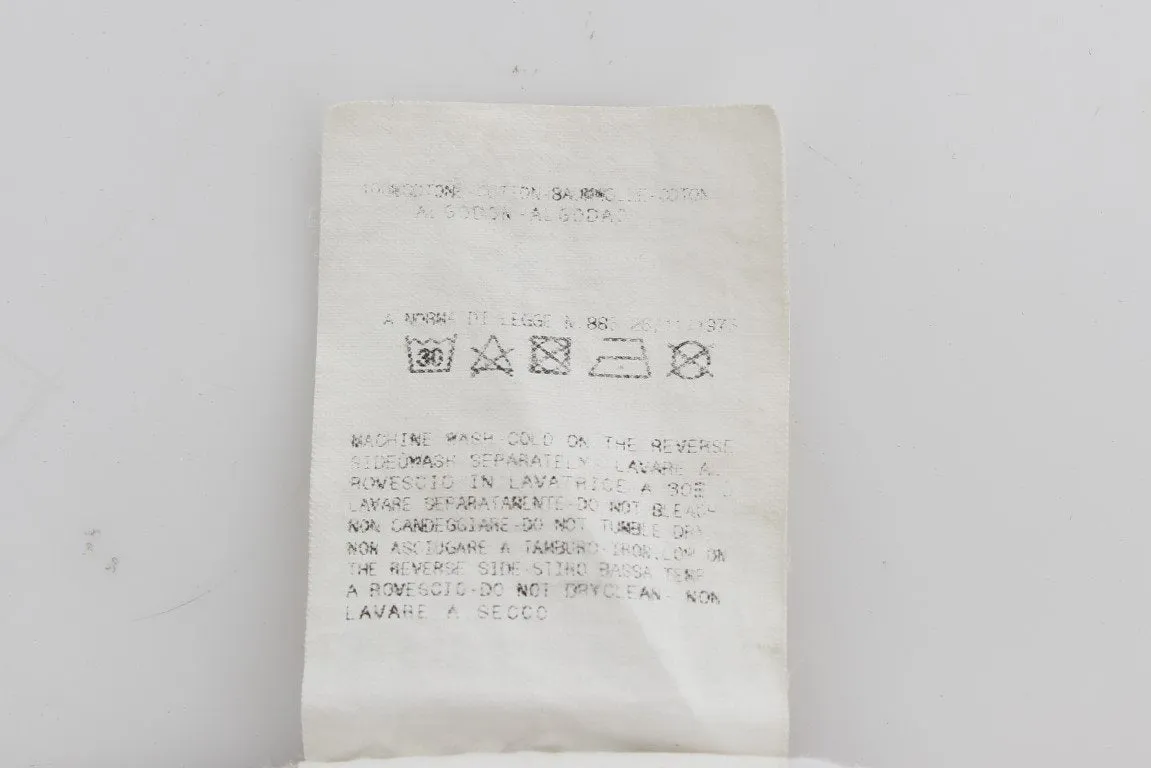 100%COTONE-COTTON-BAUMWOLLE-COTON
ALGODON-ALGODAO
A NORMA DI LEGGE N.883 26/11/1973
30
MACHINE WASH COLD ON THE REVERSE
SIDE WASH SEPARATELY- LAVARE A
ROVESCIO IN LAVATRICE A 30
LAVARE SEPARATAMENTE-DO NOT BLEACH
NON CANDEGGIARE-DO NOT TUMBLE DRY
NON ASCIUGARE A TAMBURO-IRON LOW ON
THE REVERSE SIDE-STIRO BASSA TEMP
A ROVESCIO-DO NOT DRYCLEAN- NON
LAVARE A SECCO